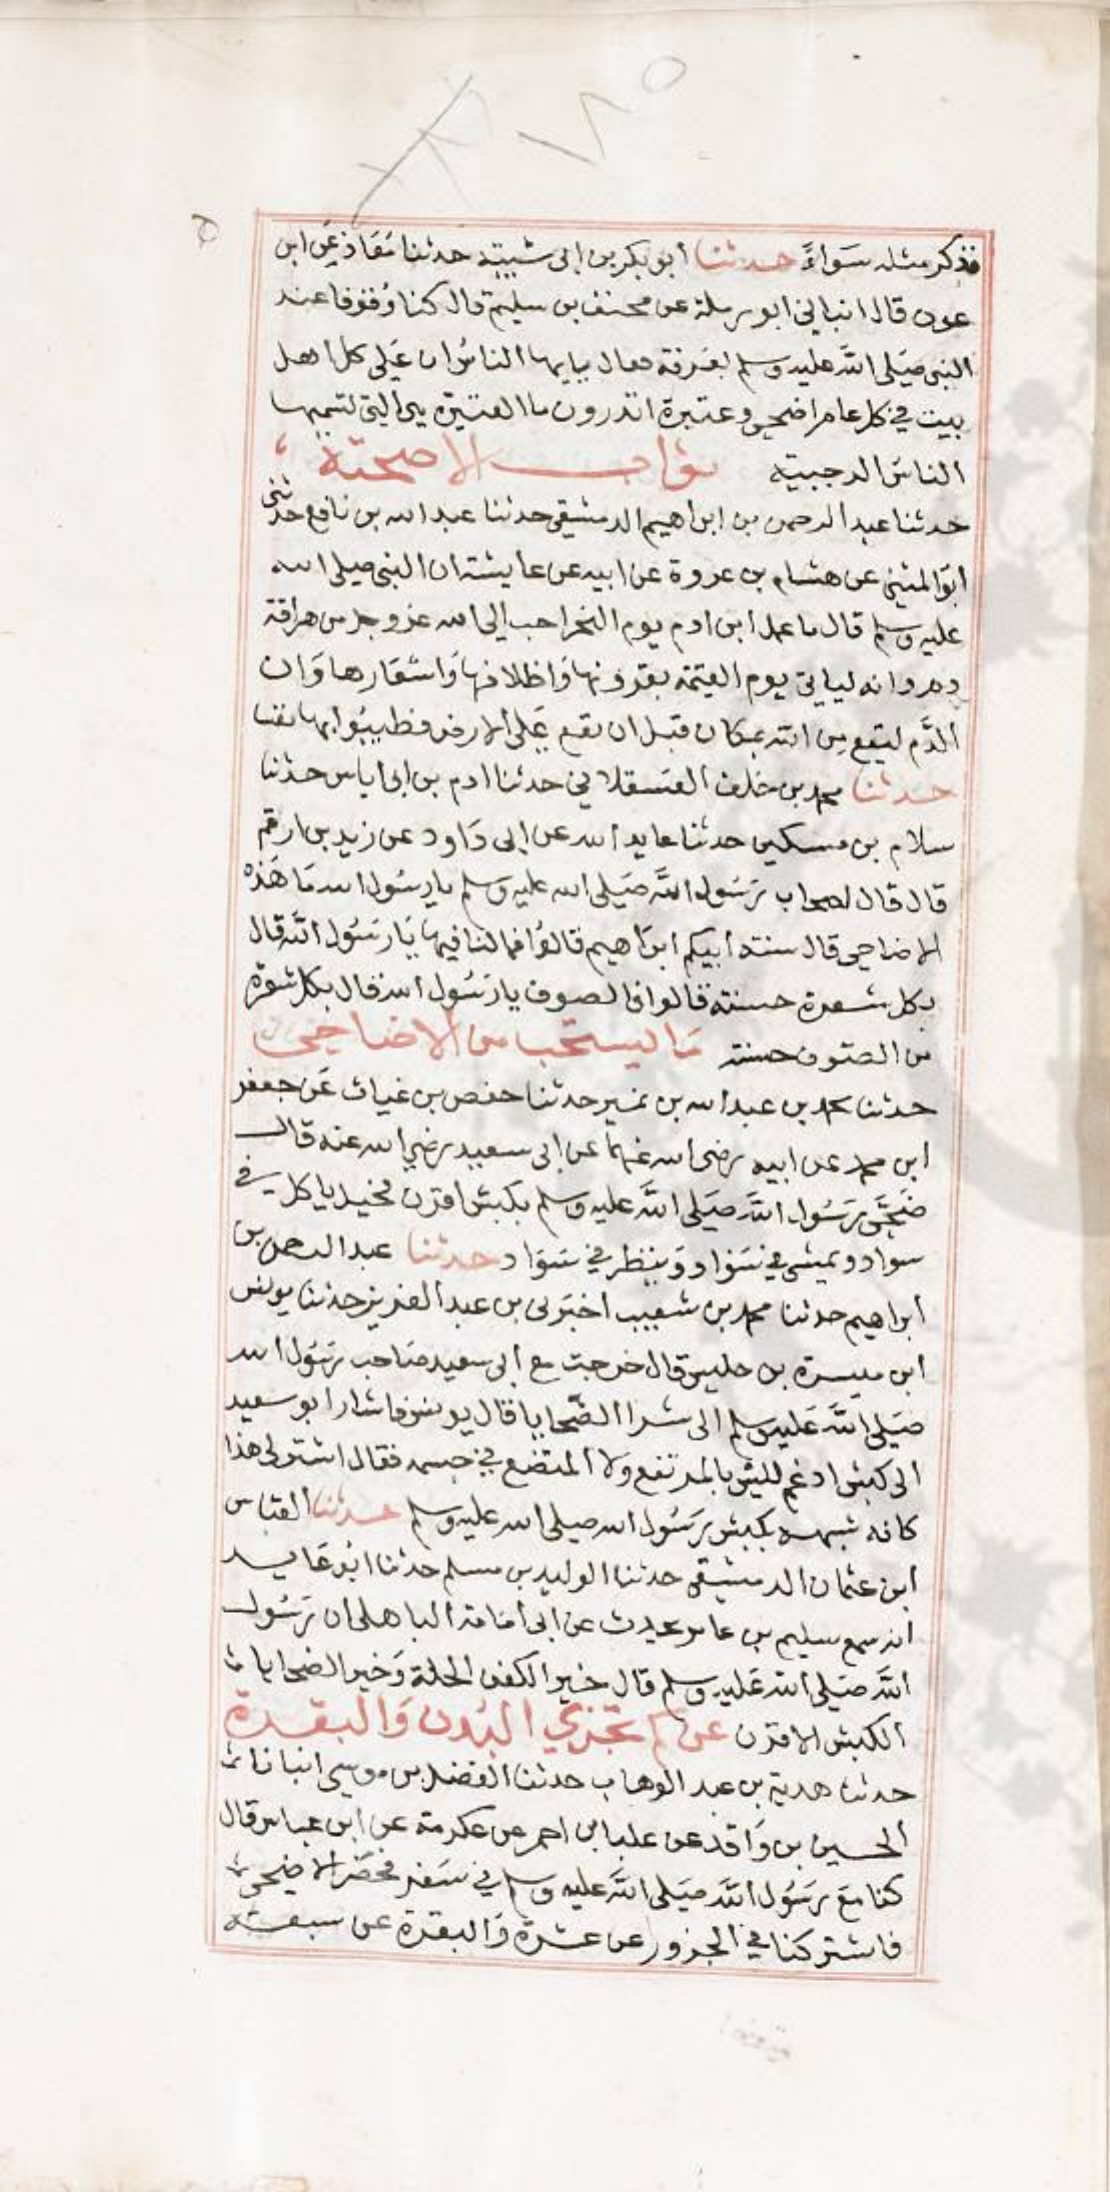 فذكر مثله سَواءً حدثنا أبو بكر بن ابى شيبة حدثنا مُعَاذ عَن ابن
عون قال انبانى ابو رملة عن مخنف بن سليم قال كنا وُقوفا عند
النبى صَلى الله عليه وسلم بعَرفة فقال يا يها الناسُ ان عَلى كل اهل
بيت في كل عام اضحى وعتيرة اتدرون ما العتيرة هى التى تسميها
الناسُ الرجبية ثواب الاضحية
حدثنا عبد الرحمن بن ابراهيم الدمشقى حدثنا عبد الله بن نافع حدثنى
ابو المثنى عن هشام بن عروة عن ابيه عن عايشة ان النبى صلى الله
عليه وسلم قال ما عمل ابن ادم يوم النحر احب الى الله عز وجل من هراقة
دم وانه لياتى يوم القيمة بقرونها وَاظلافها وَاشعَارها وَان
الدَّم ليَقع من الله بمكان قبل ان يقع عَلى الارض فطيبُوا بها نفسا
حدثنا محمد بن خلف العسقلانى حدثنا ادم بن ابى اياس حدثنا
سلام بن مسكين حدثنا عايد الله عن ابى دَاود عن زيد بن ارقم
قال قال اصحاب رَسُول الله صَلى الله عليه وسلم يا رسُول الله مَا هَذه
الاضاحى قال سنة أبيكم ابرَاهيم قالوُا فما لنا فيها يَا رسُول الله قال
بكل شعرة حسنة قالوا فالصوف يا رسُول الله قال بكل شعرة
من الصوف حسنة مَا يستحب من الاضاحى
حدثنا محمد بن عبد الله بن نمير حدثنا حفص بن غياث عَن جعفر
ابن محمد عن ابيه رضى الله عنهما عن ابى سعيد رضي الله عنه قال
ضَحَّى رَسُول الله صَلى الله عليه وسلم بكبش اقرن فحيل ياكل في
سواد ويمشى في سَوَاد وَينظر في سَوَاد حدثنا عبد الرحمن بن
ابراهيم حدثنا محمد بن شعيب اخبرنى بن عبد العزيز حدثنا يونس
ابن ميسرة بن حلبس قال خرجت مع ابى سعيد صَاحب رَسُول الله
صَلى الله عَليه وسلم الى شرا الضَّحايا قال يونس فاشار ابو سعيد
الى كبش ادغم لليس بالمرتفع وَلا المتضع في جسمه فقال اشتر لى هذا
كانه شبهه بكبش رَسُول الله صلى الله عليه وسلم حدثنا العَباس
ابن عثمان الدمشقى حدثنا الوليد بن مسلم حدثنا ابُو عَايد
انه سمع سليم بن عامر يحدث عن ابى امَامة الباهلى ان رَسُول
الله صَلى الله عَليه وسلم قال خير الكفن الحلة وَخير الضحايا
الكبش الاقرن عن كم تجزي البُدن وَالبقرة
حدثنا هدية بن عبد الوهاب حدثنا الفضل بن موسى انبانا
الحسين بن وَاقد عن علبا بن احمر عن عكرمة عن ابن عباس قال
كنا مَع رَسُول الله صَلى الله عليه وسلم في سَفر فحَضَر الاضحى
فاشتركنا في الجزور عن عشرة وَالبقرة عن سبعة